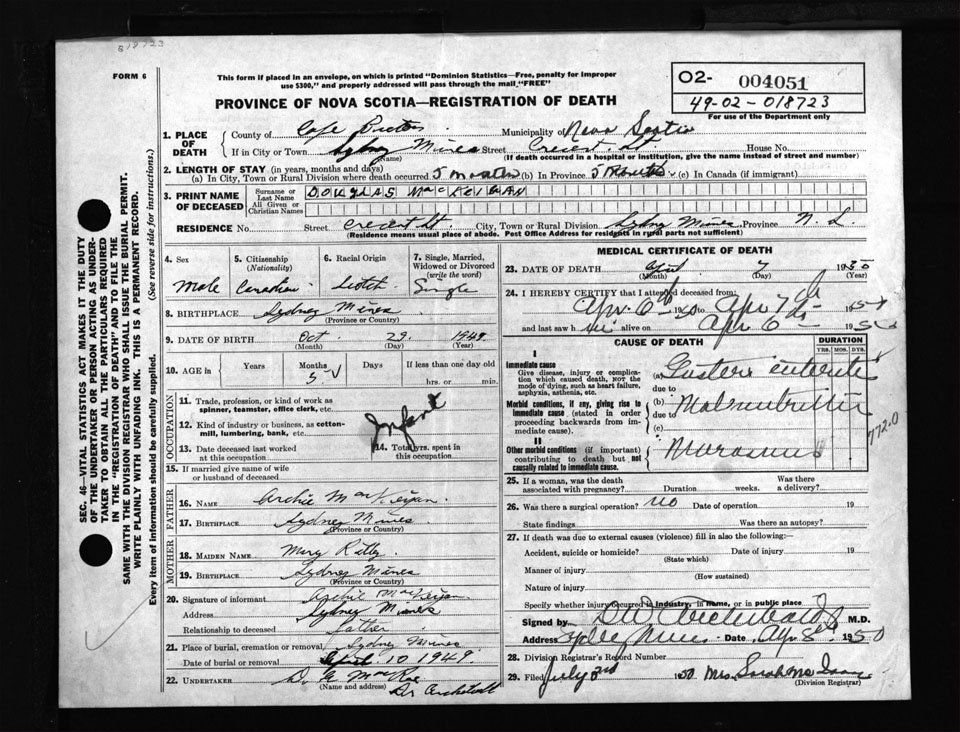 B 18723
FORM 6
This form if placed in an envelope, on which is printed "Dominion Statistics—Free, penalty for improper
use $300," and properly addressed will pass through the mail "FREE"
O2- 004051
49-02-018723
For use of the Department only
PROVINCE OF NOVA SCOTIA—REGISTRATION OF DEATH
1. PLACE OF DEATH
County of Cape Breton Municipality of Nova Scotia
If in City or Town Sydney Mines Street Crescent St. House No.
(Name) (If death occurred in a hospital or institution, give the name instead of street and number)
2. LENGTH OF STAY (in years, months and days)
(a) In City, Town or Rural Division where death occurred 5 months (b) In Province 5 Months (c) In Canada (if immigrant)
3. PRINT NAME OF DECEASED
Surname or Last Name
All Given or Christian Names
DOUGLAS Mac
RESIDENCE No. Street Crescent St. City, Town or Rural Division Sydney Mines Province N. S.
(Residence means usual place of abode. Post Office Address for residents in rural parts not sufficient)
4. Sex
Male
5. Citizenship
(Nationality)
Canadian
6. Racial Origin
Scotch
7. Single, Married,
Widowed or Divorced
(write the word)
Single
8. BIRTHPLACE Sydney Mines
(Province or Country)
9. DATE OF BIRTH Oct. 29. 1949.
(Month) (Day) (Year)
10. AGE in Years Months Days If less than one day old
5 hrs. or min.
OCCUPATION
11. Trade, profession, or kind of work as
spinner, teamster, office clerk, etc.
12. Kind of industry or business, as cotton-
mill, lumbering, bank, etc.
Infant
13. Date deceased last worked
at this occupation
14. Total yrs. spent in
this occupation
15. If married give name of wife
or husband of deceased
FATHER
16. NAME Archie
17. BIRTHPLACE Sydney Mines
(Province or Country)
MOTHER
18. MAIDEN NAME Mary
19. BIRTHPLACE Sydney Mines
(Province or Country)
20. Signature of informant Archie
Address Sydney Mines
Relationship to deceased Father
21. Place of burial, cremation or removal Sydney Mines
Date of burial or removal April 10 1949.
22. UNDERTAKER D.
(Name and address)
Dr
MEDICAL CERTIFICATE OF DEATH
23. DATE OF DEATH April 7 1950
(Month) (Day) (Year)
24. I HEREBY CERTIFY that I attended deceased from:
Apr 6th 1950 to Apr 7th 1950
and last saw h alive on Apr 6 1950
CAUSE OF DEATH
DURATION
YRS. MOS. DYS.
I
Immediate cause
Give disease, injury or complica-
tion which caused death, NOT the
mode of dying, such as heart failure,
asphyxia, asthenia, etc.
(a) Gastero enteritis
due to
Morbid conditions, if any, giving rise to
immediate cause (stated in order
proceeding backwards from im-
mediate cause).
(b) Malnutrition
due to
(c)
772.0
II
Other morbid conditions (if important)
contributing to death but not
causally related to immediate cause.
Marasmus
25. If a woman, was the death
associated with pregnancy? Duration weeks. Was there
a delivery?
26. Was there a surgical operation? no Date of operation 19
State findings Was there an autopsy?
27. If death was due to external causes (violence) fill in also the following:—
Accident, suicide or homicide? Date of injury 19
(State which)
Manner of injury
(How sustained)
Nature of injury
Specify whether injury occurred in industry, in home, or in public place
Signed by Archibald M.D.
Address Date Apr 8 1950
28. Division Registrar's Record Number
29. Filed July 3rd 1950 Mrs Sarah
(Division Registrar)
SEC. 46—VITAL STATISTICS ACT MAKES IT THE DUTY
OF THE UNDERTAKER OR PERSON ACTING AS UNDER-
TAKER TO OBTAIN ALL THE PARTICULARS REQUIRED
IN THE "REGISTRATION OF DEATH" AND TO FILE THE
SAME WITH THE DIVISION REGISTRAR WHO SHALL ISSUE THE BURIAL PERMIT.
WRITE PLAINLY WITH UNFADING INK. THIS IS A PERMANENT RECORD.
Every item of information should be carefully supplied. (See reverse side for instructions.)